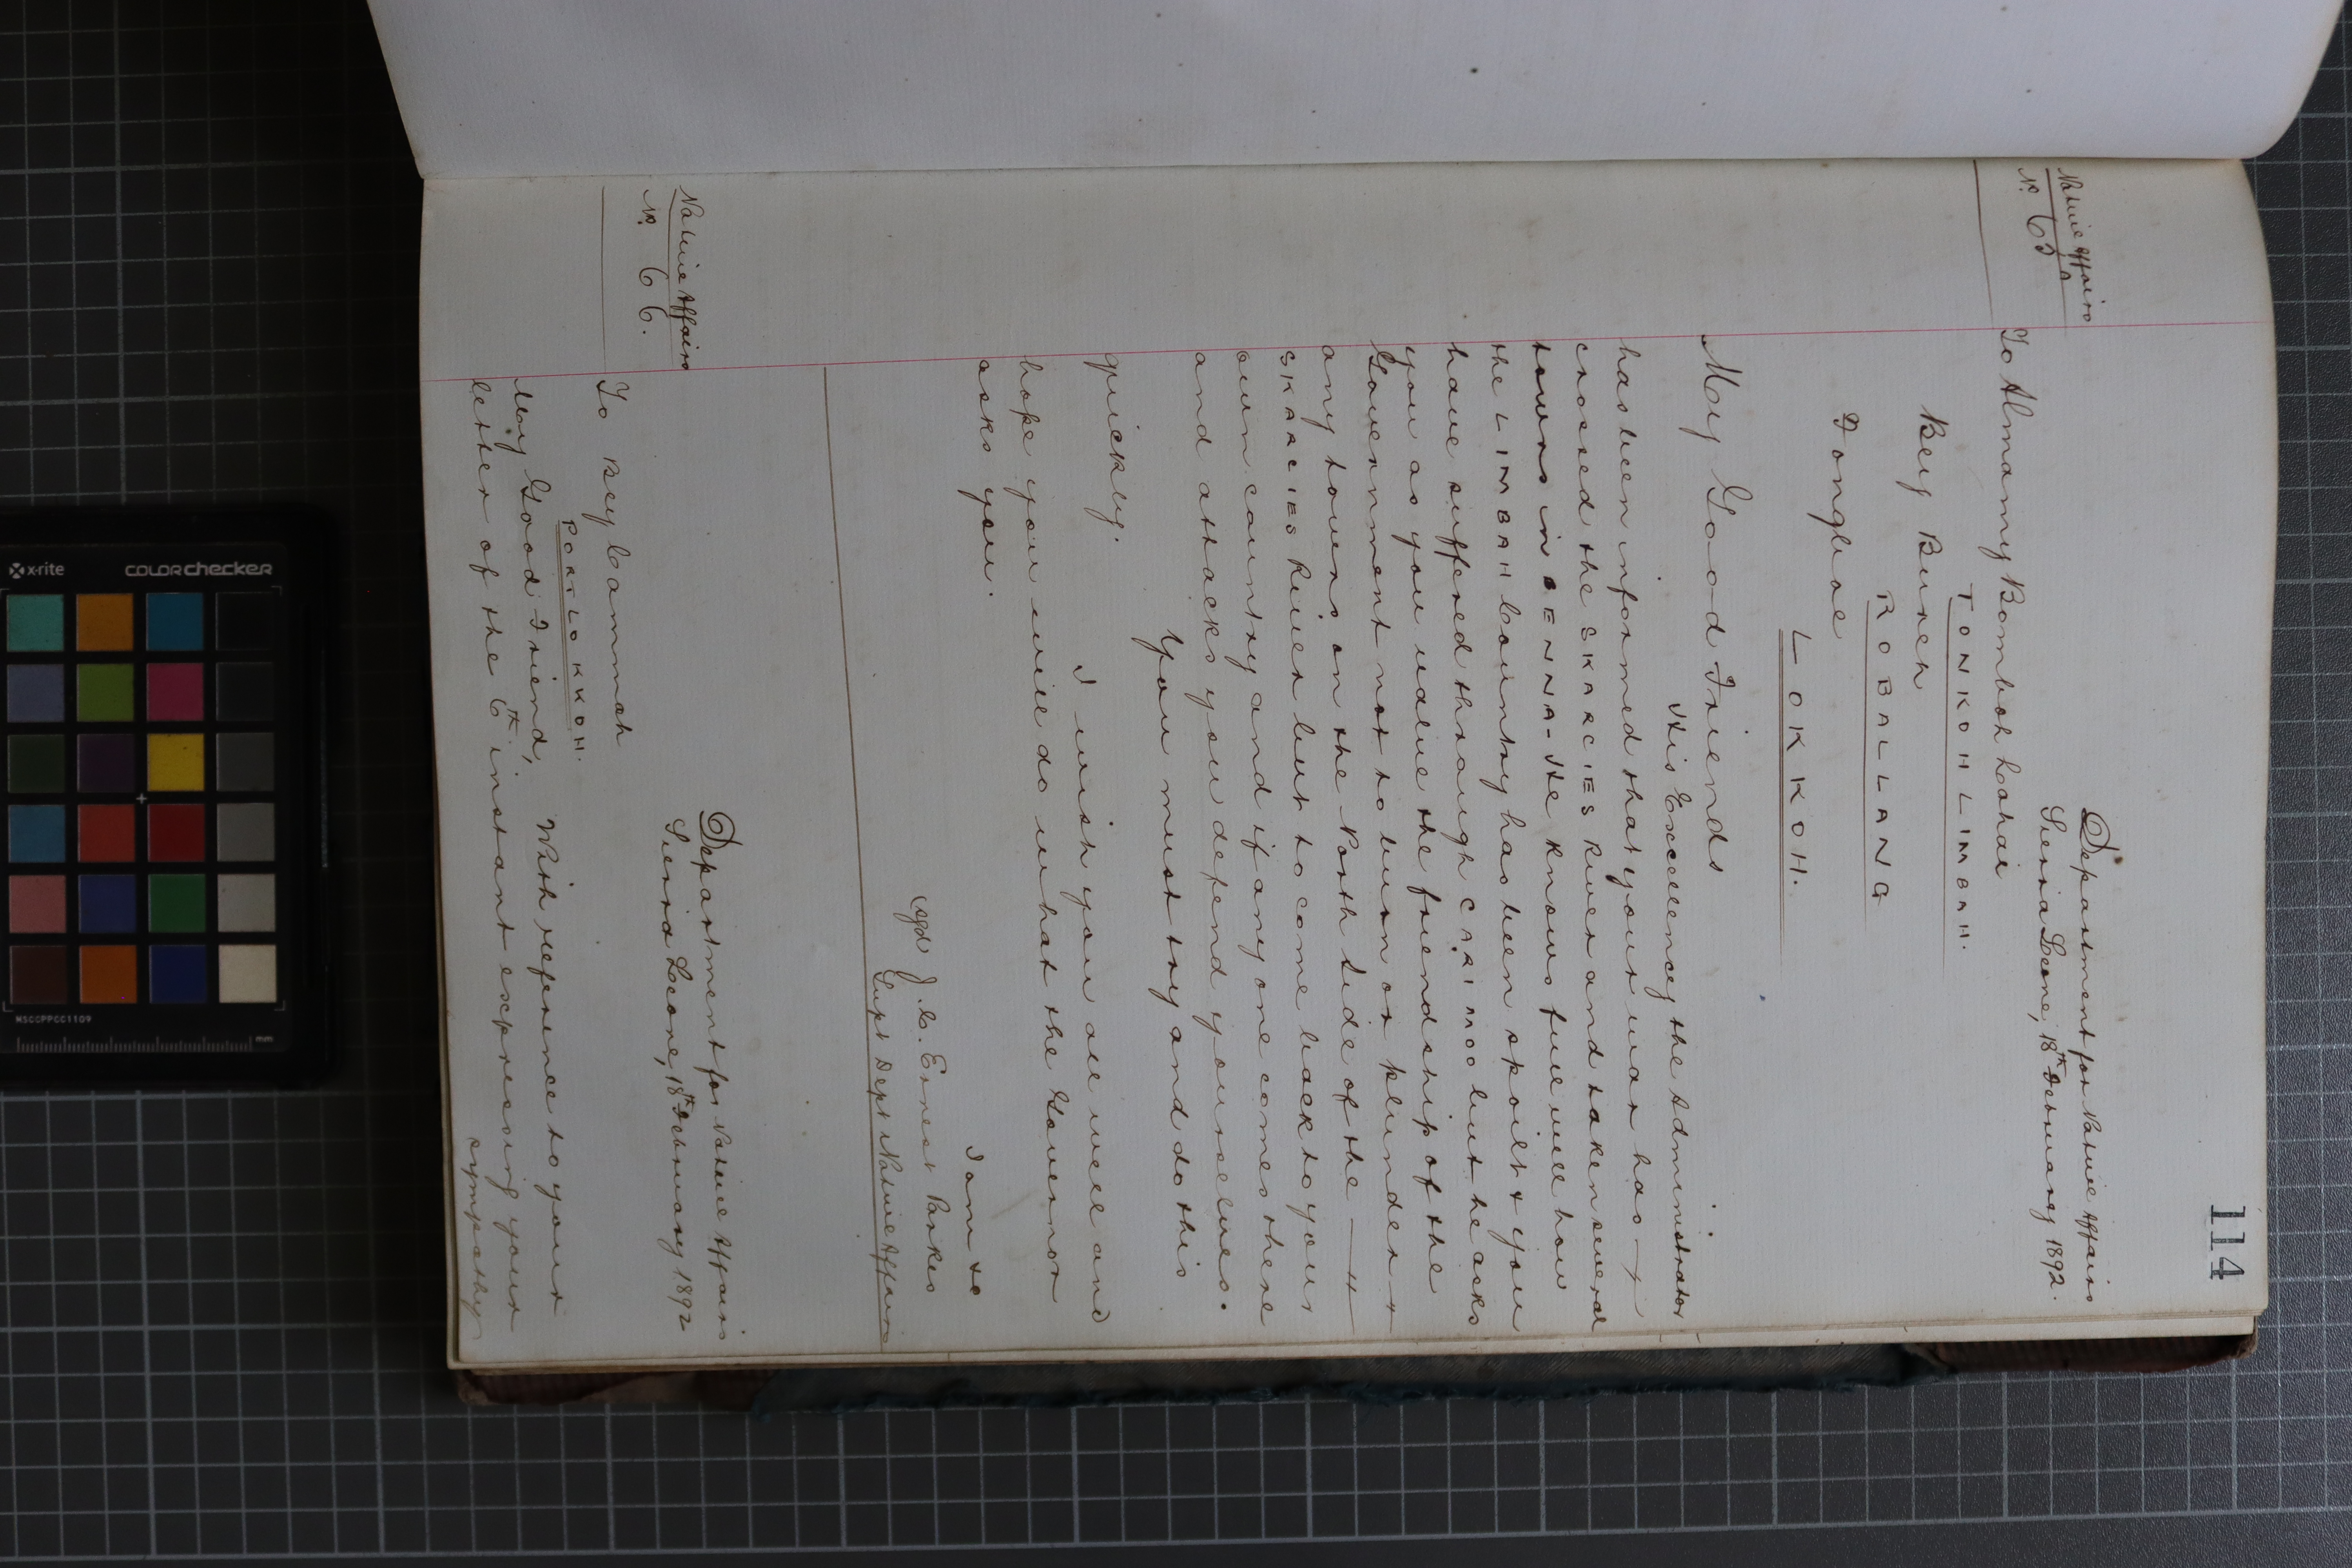 114
Native Affairs
No. 65
Department for Native Affairs
Sierra Leone, 18th February 1892.
To Almamy Bomboh Lahai
TONKOH LIMBAH.
Bey Bureh
ROBALLANG
Fongboe
LOKKOH.
My Good Friends
His Excellency the Administrator
has been informed that your war has —
crossed the SKARCIES River and taken several
towns in BENNA - He knows full well how
the LIMBAH Country has been spoilt & you
have suffered through CARIMOO but he asks
you as you value the friendship of the
Government not to burn or plunder
any towns on the North Side of the —
SKARCIES River but to come back to your
own country and if any one comes there
and attacks you defend yourselves.
You must try and do this
quickly.
I wish you all well and
hope you will do what the Governor
asks you.
I am &c
sgd J. C. Ernest Parkes
Supt Dept Native Affairs
Native Affairs
No. 66.
Department for Native Affairs
Sierra Leone, 18th February 1892
To Bey Cammah
PORTLOKKOH.
My Good Friend,
With reference to your
letter of the 6th instant expressing your
sympathy
x-rite
COLORchecker
MSCCPPCC1109
mm